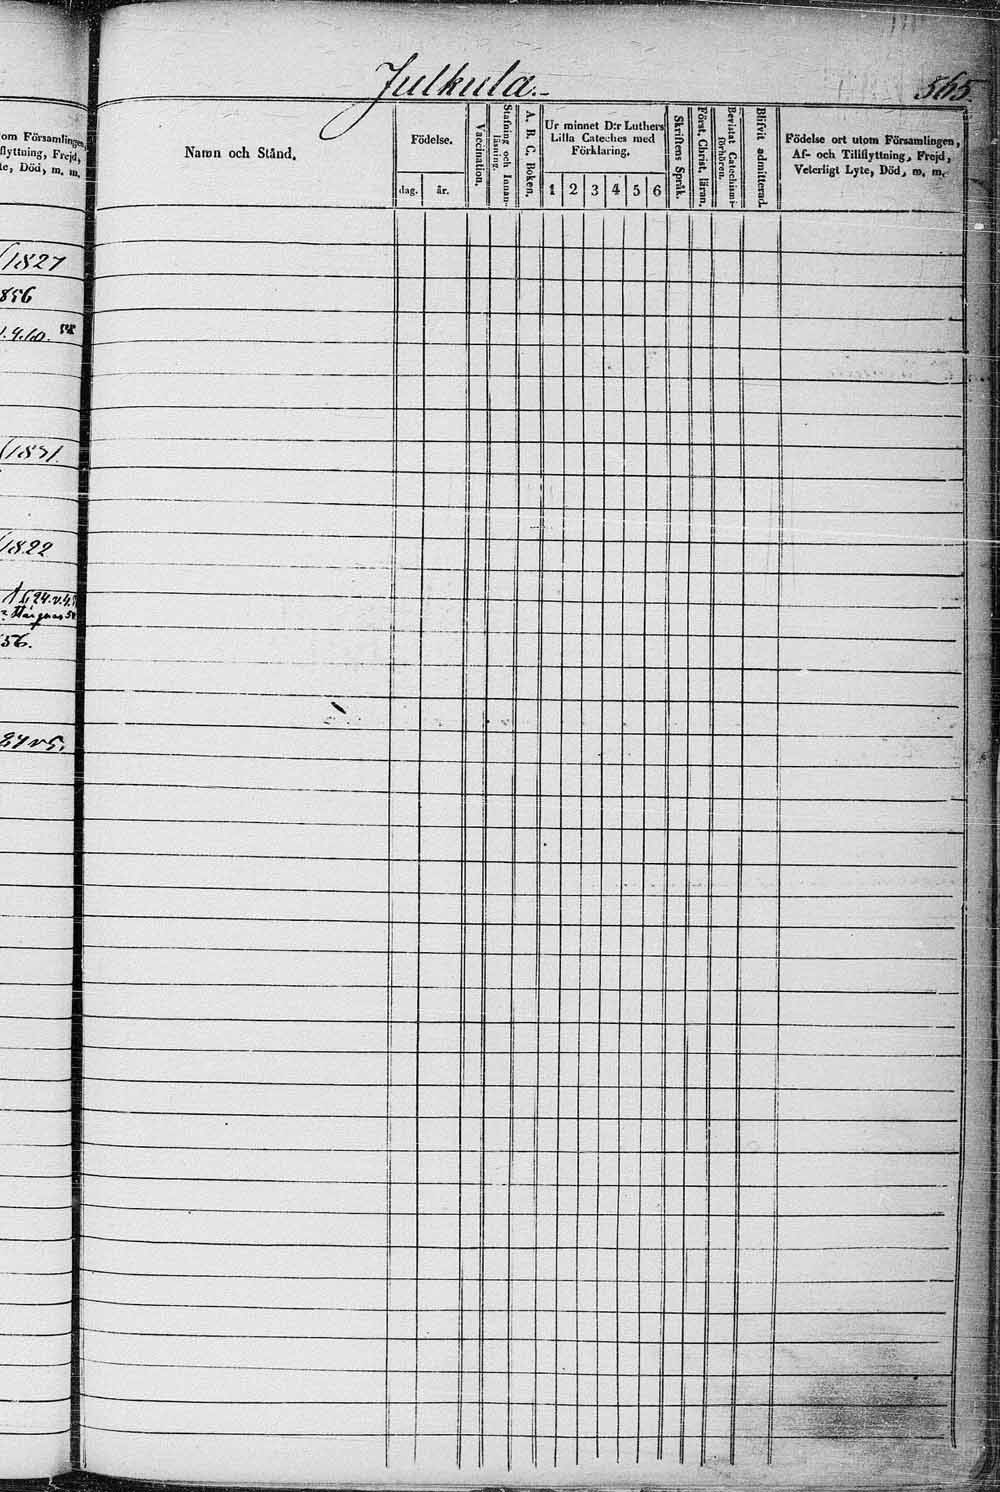 om Församlingen,
flyttning, Frejd,
te, Död, m. m.
1827
856
1831.
1822
56.
Julkula.
565.
Namn och Stånd.
Födelse.
dag.
år.
Vaccination.
Stafning och Innan-
läsning.
A. B. C. Boken.
Ur minnet D:r Luthers
Lilla Cateches med
Förklaring.
1 2 3 4 5 6
Skriftens Språk.
Först. Christ. läran.
Bevistat Catechismi-
förhören.
Blifvit admitterad.
Födelse ort utom Församlingen,
Af- och Tillflyttning, Frejd,
Veterligt Lyte, Död, m. m.